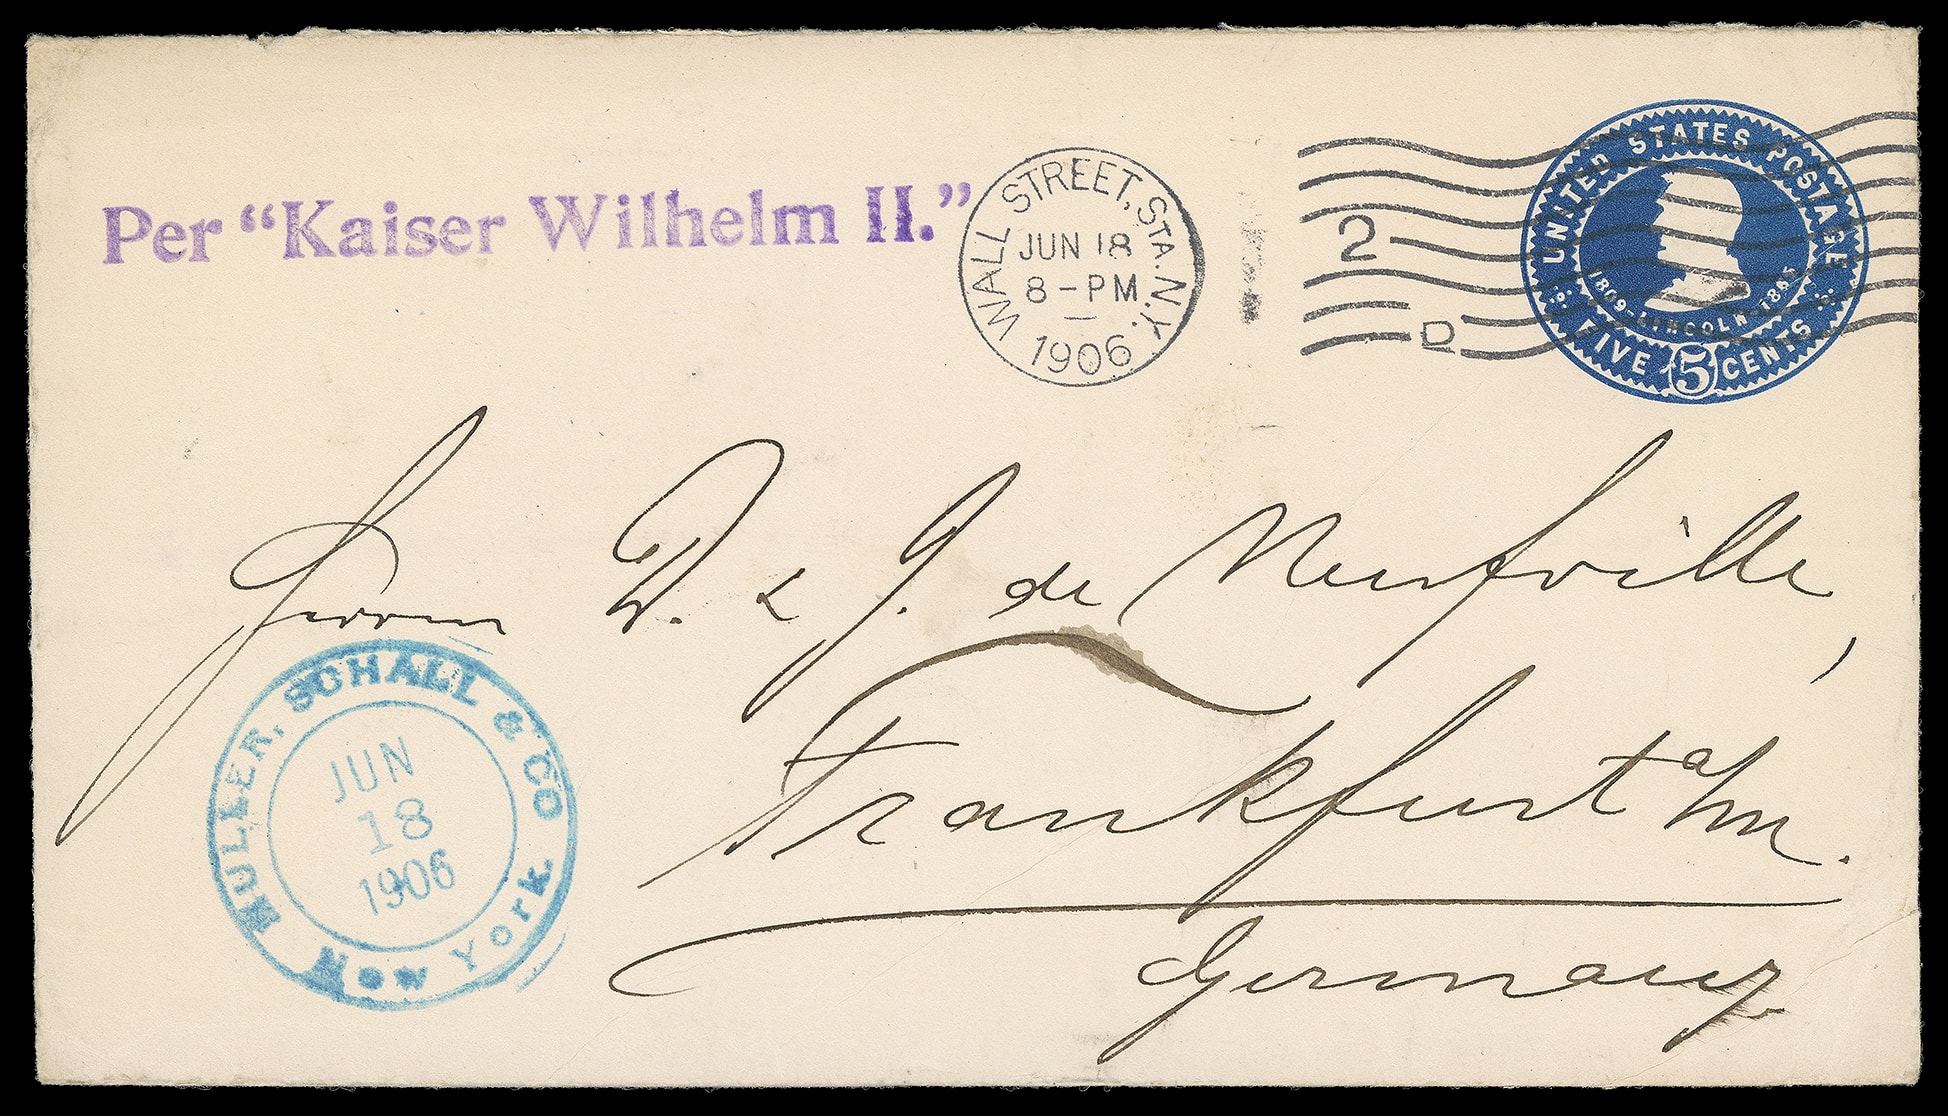 Per "Kaiser Wilhelm II."
WALL STREET, STA. N.Y.
JUN 18
8-PM
1906
2
D
UNITED STATES POSTAGE
1809-LINCOLN-1865
FIVE 5 CENTS
Herren D. & J. de Neufville,
Frankfurt a/m.
Germany
MULLER, SCHALL & CO
JUN
18
1906
New York.